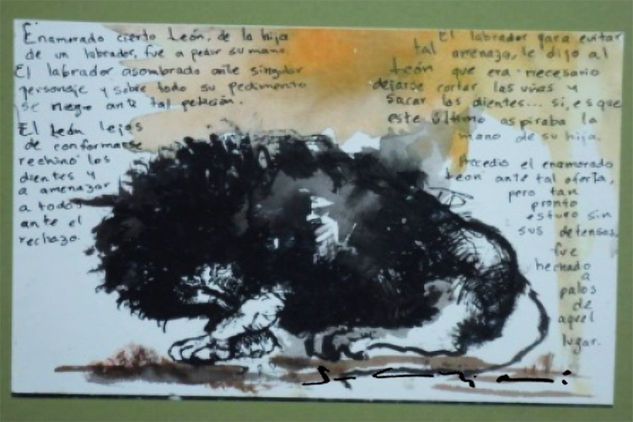 Enamorado cierto León, de la hija
de un labrador, fue a pedir su mano.
El labrador asombrado ante singular
personaje y sobre todo su pedimento
se nego ante tal petición.
El León lejos
de conformarse
rechinó los
dientes y
a amenazar
a todos
ante el
rechazo.
El labrador para evitar
tal amenaza, le dijo al
León que era necesario
dejarse cortar las uñas y
sacar los dientes... si, es que
este último aspiraba la
mano de su hija.
Procedio el enamorado
León ante tal oferta,
pero tan
pronto
estuvo sin
sus defensas,
fue
hechado
a
palos
de
aquel
lugar.